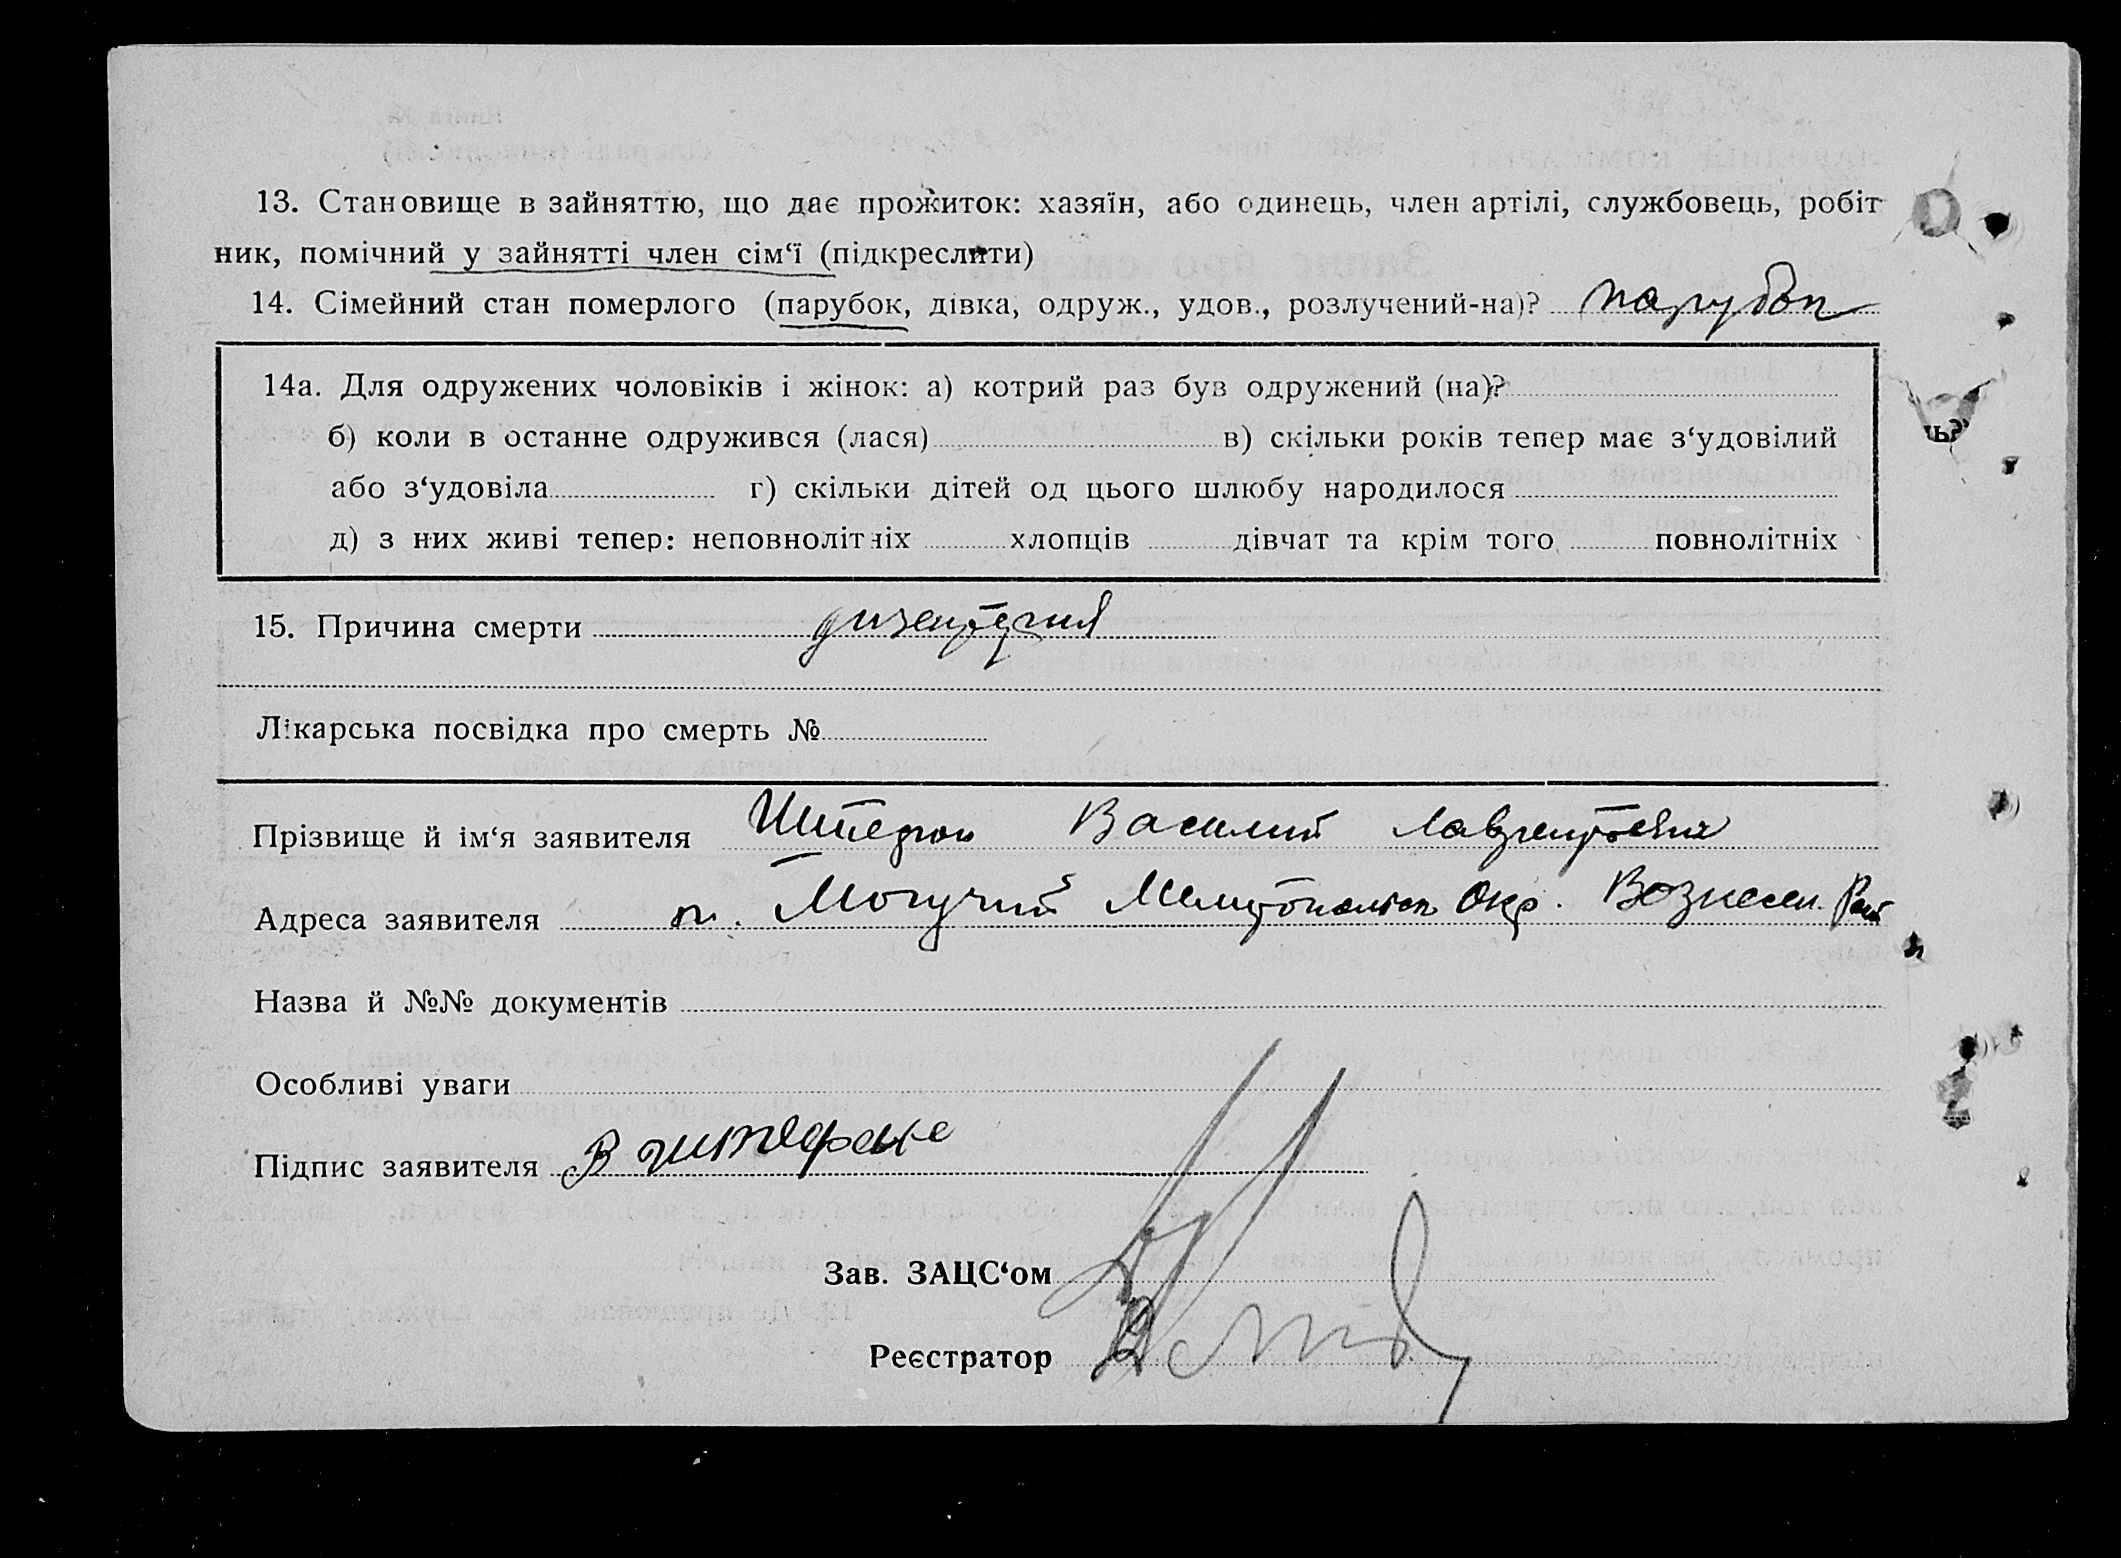 13. Становище в зайняттю, що дає прожиток: хазяїн, або одинець, член артілі, службовець, робіт
ник, помічний у зайнятті член сім‘ї (підкреслити)
14. Сімейний стан померлого (парубок, дівка, одруж., удов., розлучений-на)? парубок
14а. Для одружених чоловіків і жінок: а) котрий раз був одружений (на)?
б) коли в останне одружився (лася) в) скільки років тепер має з‘удовілий
або з‘удовіла г) скільки дітей од цього шлюбу народилося
д) з них живі тепер: неповнолітніх хлопців дівчат та крім того повнолітніх
ь?
15. Причина смерти дизентерия
Лікарська посвідка про смерть №
Прізвище й ім‘я заявителя Василий Лаврентьевич
Адреса заявителя п. Могучий Мелитопольск Окр. Вознесен. Рай
Назва й №№ документів
Особливі уваги
Підпис заявителя В
Зав. ЗАЦС‘ом
Реєстратор